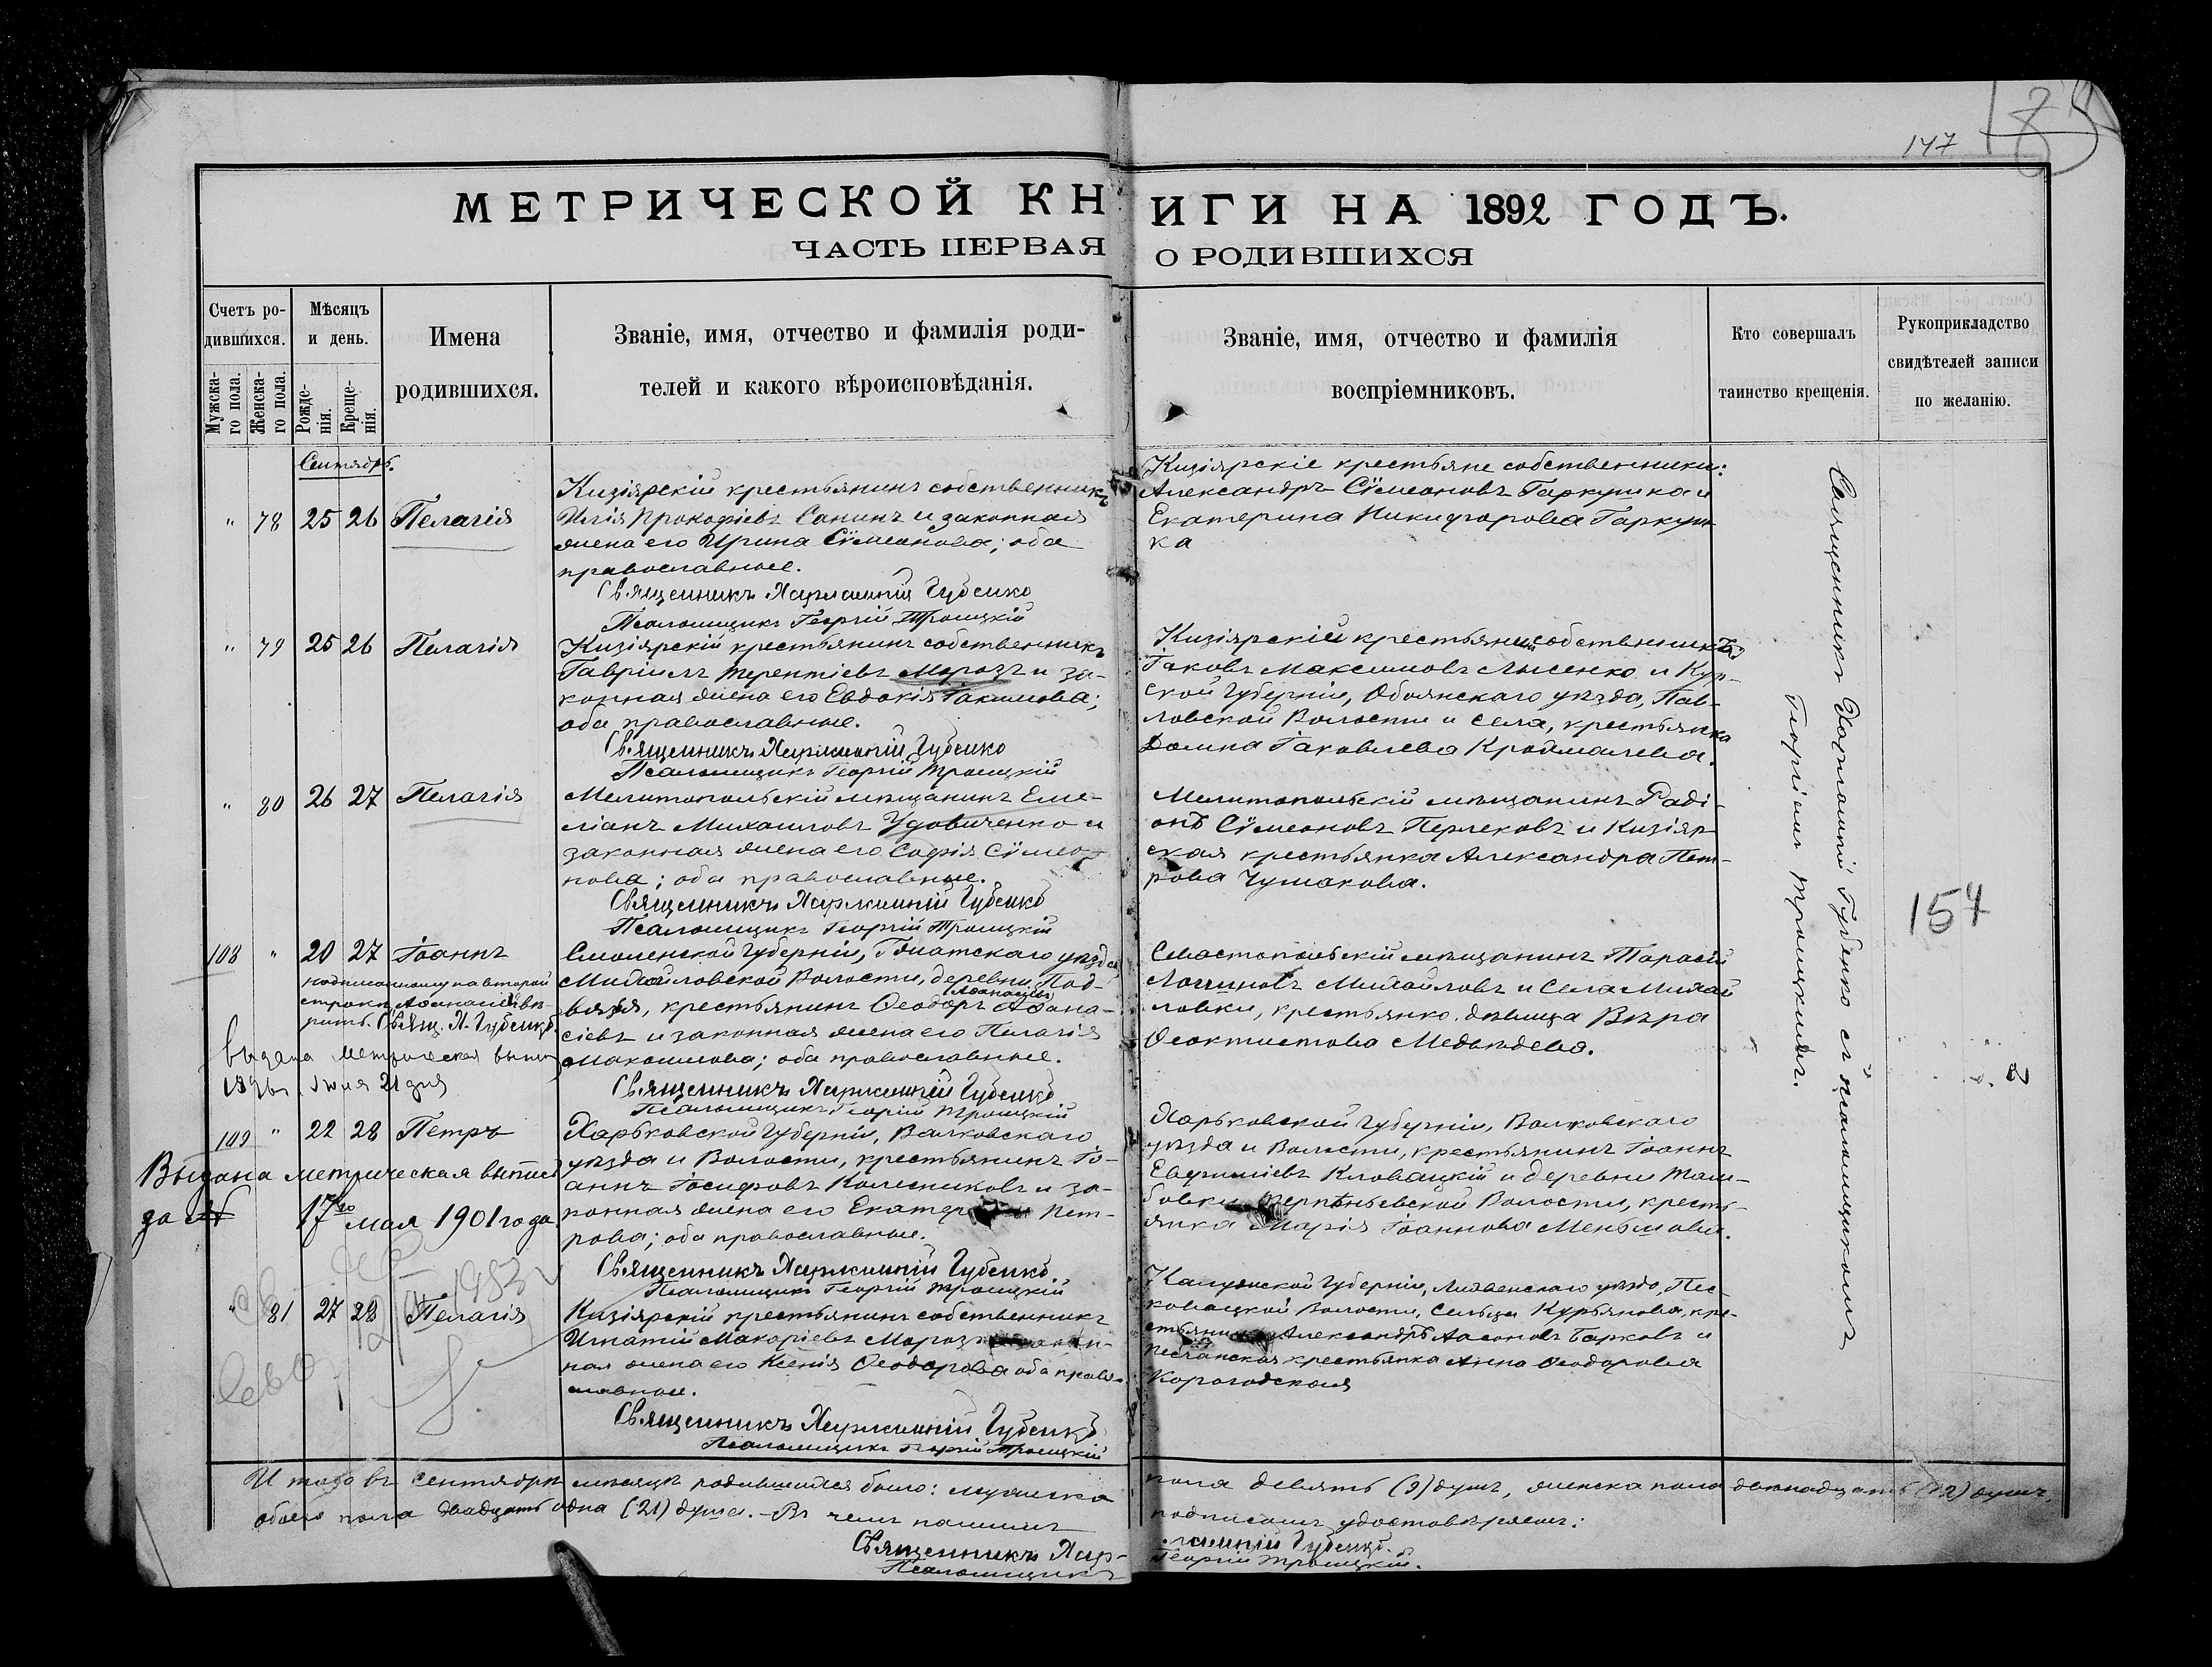 147
МЕТРИЧЕСКОЙ КНИГИ НА 1892 ГОДЪ.
ЧАСТЬ ПЕРВАЯ О РОДИВШИХСЯ
Счетъ ро-
дившихся.
Мужска-
го пола.
Женска-
го пола.
Мѣсяцъ
и день.
Рожде-
нія.
Креще-
нія.
Имена
родившихся.
Званіе, имя, отчество и фамилія роди-
телей и какого вѣроисповѣданія.
Званіе, имя, отчество и фамилія
воспріемниковъ.
Кто совершалъ
таинство крещенія.
Рукоприкладство
свидѣтелей записи
по желанію.
Сентябрь.
" 78 25 26 Пелагія
Кизіярскій крестьянинъ собственникъ
Илія Прокофіевъ Санинъ и законная
жена его Ирина Сѵмеонова; оба
православные.
Священникъ Харлампій Губенко
Псаломщикъ Георгій Троицкій
Кизіярскіе крестьяне собственники:
Александръ Сѵмеоновъ Гаркушка и
Екатерина Никифорова Гаркуш-
ка
" 79 25 26 Пелагія
Кизіярскій крестьянинъ собственникъ
Гавріилъ Терентіевъ Морозъ и за-
конная жена его Евдокія Іакимова;
оба православные.
Священникъ Харлампій Губенко
Псаломщикъ Георгій Троицкій
Кизіярскій крестьянинъ собственникъ
Іаковъ Максимовъ Лысенко и Кур-
ской Губерніи, Обоянскаго уѣзда, Пав-
ловской Волости и села, крестьянка
Домна Іаковлева
" 80 26 27 Пелагія
Мелитопольскій мѣщанинъ Еме-
ліанъ Михаиловъ Удовиченко и
законная жена его Софія Сѵмео-
нова; оба православные.
Священникъ Харлампій Губенко
Псаломщикъ Георгій Троицкій
Мелитопольскій мѣщанинъ Радi-
онъ Сѵмеоновъ и Кизіяр-
ская крестьянка Александра Пет-
рова Чумакова.
108 " 20 27 Іоаннъ
надписанному на второй
строкѣ Аѳанасіевъ вѣ-
рить. Свящ. Х. Губенко
Выдана метрическая выпись
Іюля 21 дня
Смоленской Губерніи, Гжатскаго уѣзда
Михайловской Волости, деревни Под-
вязья, крестьянинъ Ѳеодоръ Аѳана-
Аѳанасіевъ
сіевъ и законная жена его Пелагія
Максимова; оба православные.
Священникъ Харлампій Губенко
Псаломщикъ Георгій Троицкій
Севастопольскій мѣщанинъ Тарасій
Логиновъ Михайловъ и села Михай-
ловки, крестьянка, дѣвица Вѣра
Ѳеоктистова Медвѣдева.
109 " 22 28 Петръ
Выдана метрическая выпись
за №
17го мая 1901 года
Харьковской Губерніи, Валковскаго
уѣзда и Волости, крестьянинъ Іо-
аннъ Іосифовъ Колесниковъ и за-
конная жена его Екатерина Пет-
рова; оба православные.
Священникъ Харлампій Губенко
Псаломщикъ Георгій Троицкій
Харьковской Губерніи, Валковскаго
уѣзда и Волости, крестьянинъ Іоаннъ
Евфиміевъ и деревни Там-
бовки, Терпѣньевской Волости, кресть-
янка Марія Іоаннова Меньшова.
" 81 27 28 Пелагія
Кизіярскій крестьянинъ собственникъ
Игнатій Макаріевъ Морозъ и закон-
ная жена его Ксенія Ѳеодорова оба право-
славные.
Священникъ Харлампій Губенко
Псаломщикъ Георгій Троицкій
Калужской Губерніи, Лихвенскаго уѣзда, Пес-
коватской Волости, Сельца Курьянова, кре-
стьянинъ Александръ Барковъ и
Песчанская крестьянка Анна Ѳеодорова
Корогодская
Священникъ Харлампій Губенко съ псаломщикомъ
Георгіемъ Троицкимъ.
154
Итого въ сентябрѣ мѣсяцѣ родившихся было: мужеска пола девять (9) душъ, женска пола двѣнадцать (12) душъ,
обоего пола двадцать одна (21) душа. - Въ чемъ нашимъ подписомъ удостовѣряемъ:
Священникъ Харлампій Губенко.
Псаломщикъ Георгій Троицкій.